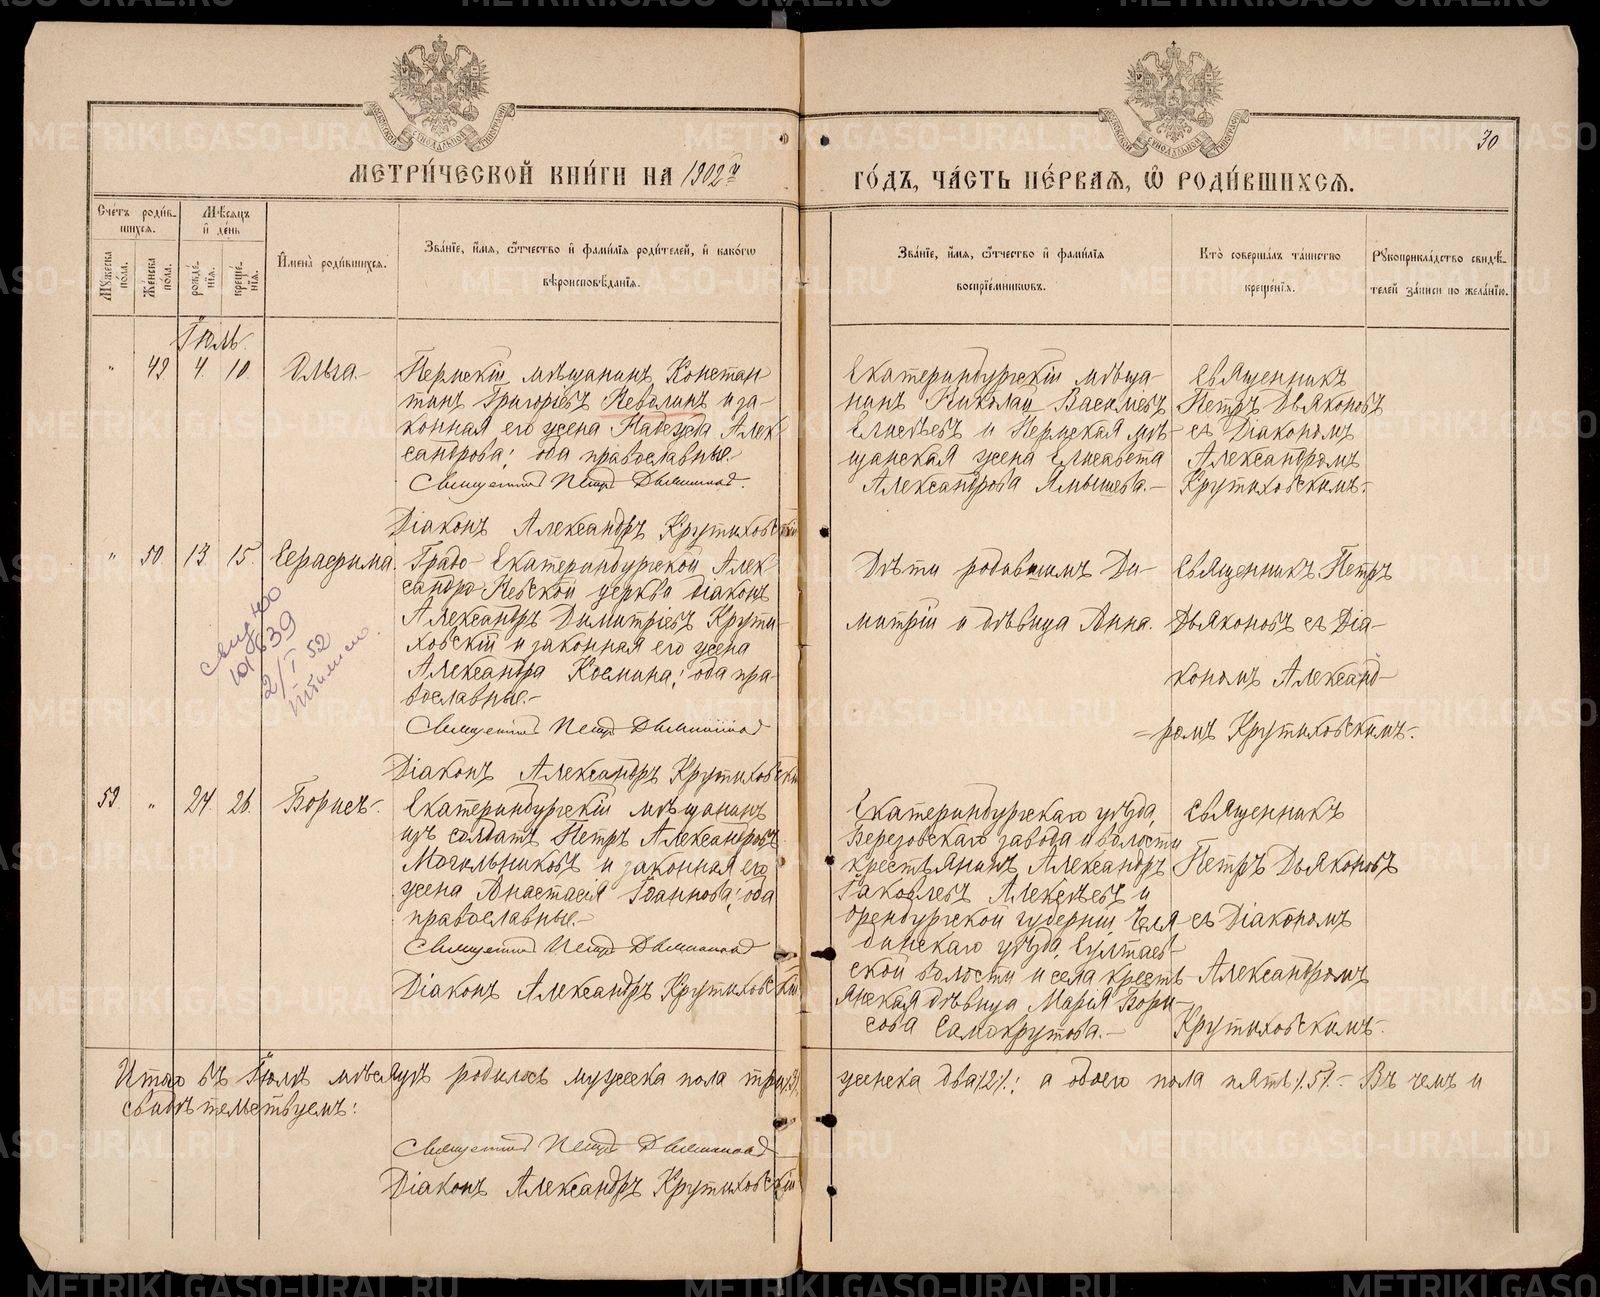 МЕТРИ́ЧЕСКОЙ КНИ́ГИ НА 1902й
ГО́ДЪ, ЧА́СТЬ ПЕ́РВАѦ, Ѡ҆ РОДИ́ВШИХСѦ.
30
Счётъ роди́в-
шихсѧ.
Мѣсѧцъ
и҆ день
Мꙋжеска
по́ла.
Же́нска
по́ла.
рожде́-
нїѧ.
креще́-
нїѧ.
И҆мена̀ роди́вшихсѧ.
Зва́нїе, и҆́мѧ, ѻ҆́тчество и҆ фами́лїѧ роди́телей, и҆ како́гѡ
вѣроисповѣ́данїѧ.
Зва́нїе, и҆́мѧ, ѻ҆́тчество и҆ фами́лїѧ
воспрїе́мникѡвъ.
Кто̀ соверша́лъ та́инство
креще́нїѧ.
Рꙋкоприкла́дство свидѣ́-
телей за́писи по жела́нїю.
Іюль.
" 49 4. 10. Ольга.
Пермскій мѣщанинъ Констан
тинъ Григоріевъ Неволинъ и за-
конная его жена Надежда Алек-
сандрова; оба православные.
Священникъ Петръ Дьяконовъ.
Діаконъ Александръ Крутиховскій
Екатеринбургскій мѣща-
нинъ Николай Васильевъ
Елисѣевъ и Пермская мѣ-
щанская жена Елисавета
Александрова Ямышева.-
Священникъ
Петръ Дьяконовъ
съ Діакономъ
Александромъ
Крутиховскимъ.
" 50 13. 15. Серафима.
Градо-Екатеринбургской Алек-
сандро-Невской церкви діаконъ
Александръ Димитріевъ Крути-
ховскій и законная его жена
Александра Космина; оба пра-
вославные.-
Священникъ Петръ Дьяконовъ
Діаконъ Александръ Крутиховскій
Дѣти родившимъ Ди-
митрій и дѣвица Анна.
Священникъ Петръ
Дьяконовъ съ Діа-
кономъ Александ-
=ромъ Крутиховскимъ.
2/I 52
52 " 24. 26. Борисъ.
Екатеринбургскій мѣщанинъ
изъ солдатъ Петръ Александровъ
Могильниковъ и законная его
жена Анастасія Іоаннова; оба
православные.-
Священникъ Петръ Дьяконовъ
Діаконъ Александръ Крутиховскій
Екатеринбургскаго уѣзда,
Березовскаго завода и волости
крестьянинъ Александръ
Іаковлевъ Алексѣевъ и
Оренбургской губерніи Челя
бинскаго уѣзда, Султаев-
ской волости и села кресть
янская дѣвица Марія Бори-
сова Самокрутова.-
Священникъ
Петръ Дьяконовъ
съ Діакономъ
Александромъ
Крутиховскимъ.
Итого въ Іюлѣ мѣсяцѣ родилось мужеска пола три /3/, женска два /2/; а обоего пола пять /5/.- Въ чемъ и
свидѣтельствуемъ:
Священникъ Петръ Дьяконовъ
Діаконъ Александръ Крутиховскій
METRIKI.GASO-URAL.RU